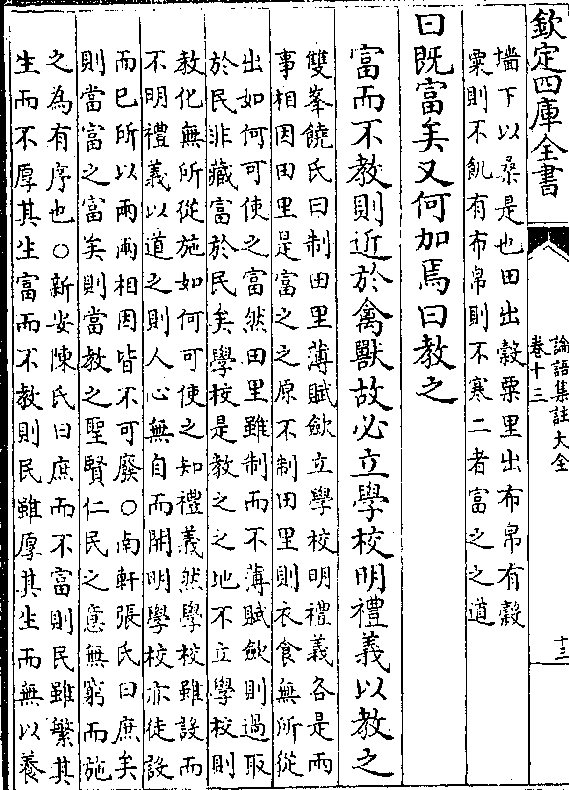 欽定四庫全書
論語集註大全
卷十三
十三
墻下以桑是也田出穀粟里出布帛有穀
粟則不飢有布帛則不寒二者富之之道
曰既富矣又何加焉曰教之
富而不教則近於禽獸故必立學校明禮義以教之
雙峯饒氏曰制田里薄賦歛立學校明禮義各是兩
事相因田里是富之之原不制田里則衣食無所從
出如何可使之富然田里雖制而不薄賦歛則過取
於民非藏富於民矣學校是教之之地不立學校則
教化無所從施如何可使之知禮義然學校雖設而
不明禮義以道之則人心無自而開明學校亦徒設
而已所以兩兩相因皆不可廢○南軒張氏曰庶矣
則當富之富矣則當教之聖賢仁民之意無窮而施
之為有序也○新安陳氏曰庶而不富則民雖繁其
生而不厚其生富而不教則民雖厚其生而無以養